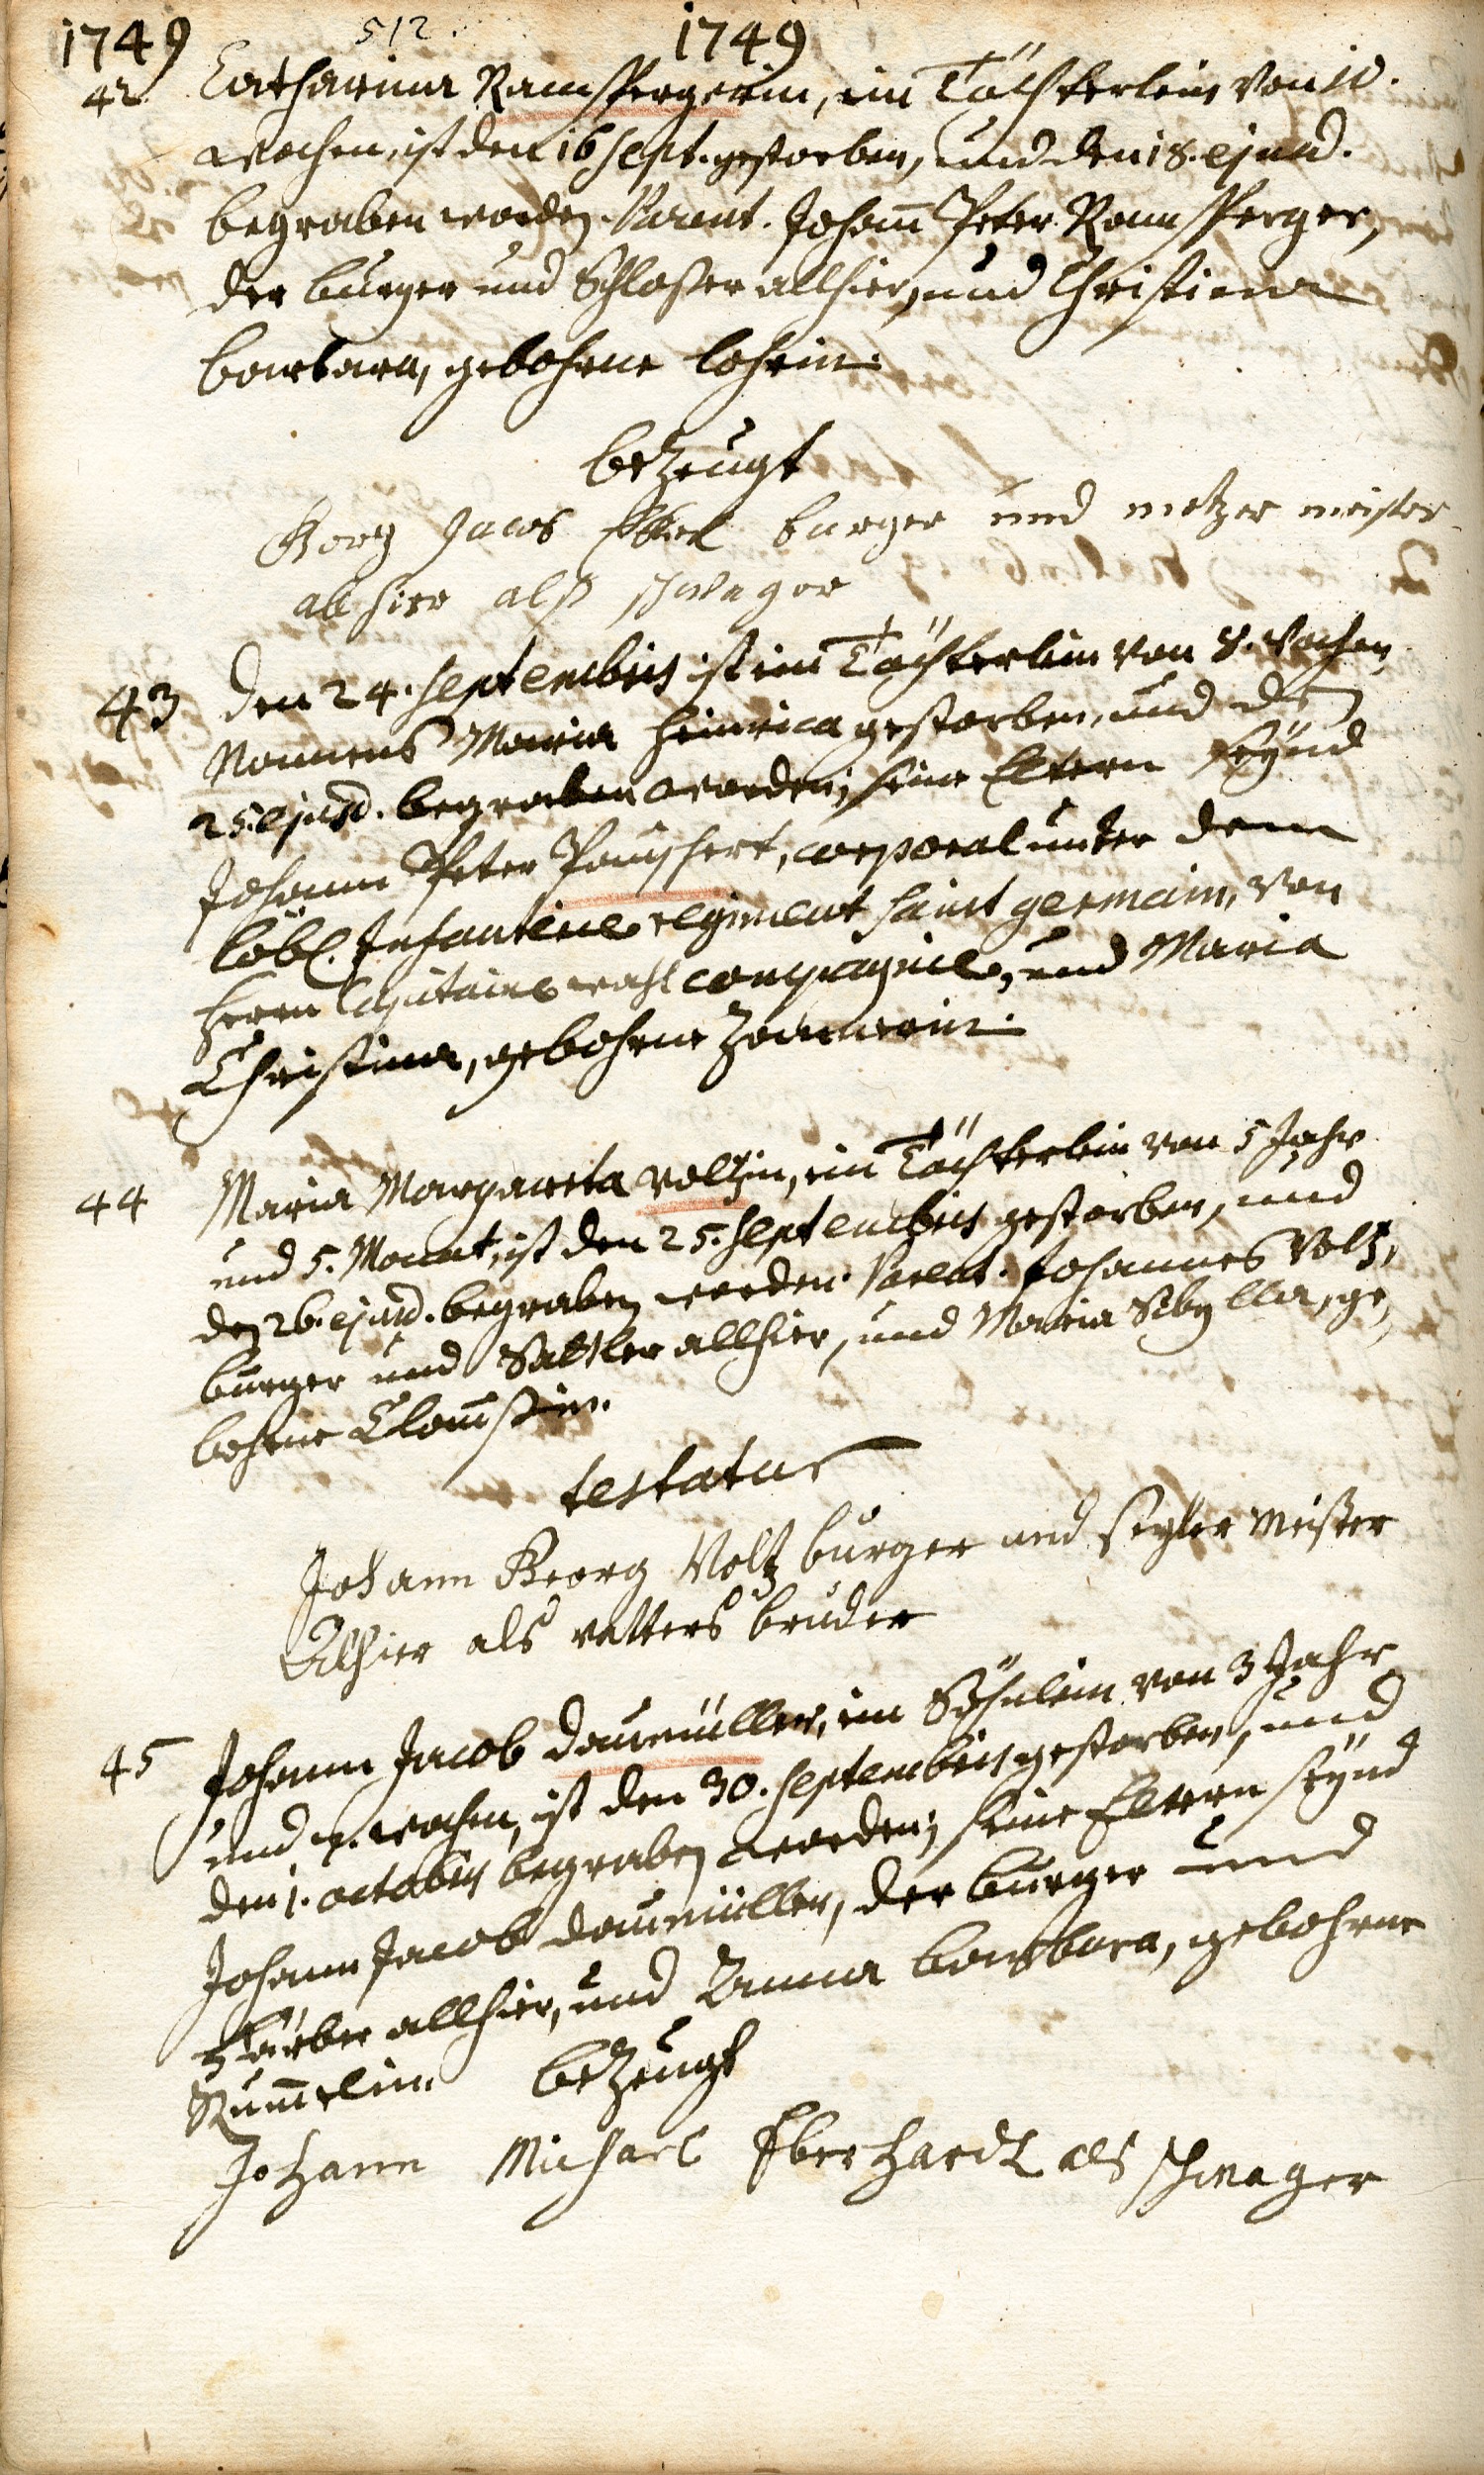 1749 512. 1749
42 Catharina Ramspergerin, ein Töchterlein von 10.
wochen, ist den 16 Sept. gestorben, und den 18. ejusd.
begraben worden. Parent. Johann Peter Ramsperger,
der burger und Schloßer allhier, und Christiana
barbara, gebohrne Lohrin.
bezeugt
Georg Jacob burger und metzger meister
alhier alß schwager
43 Den 24. Septembris ist ein Töchterlein von 8. wochen,
Nammens Maria Heinrica gestorben, und den
25. ejusd. begraben worden; seine Eltern seynd
Johann Peter corporal unter dem
löbl. Infanterie regiment Saint germain, von
Herrn Capitaine wahl compagnie, und Maria
Christina, gebohrne
44 Maria Margareta Voltzin, ein Töchterlein von 5 Jahr
und 5. Monat, ist den 25. Septembris gestorben, und
den 26. ejusd. begraben worden. Parent. Johannes Voltz,
burger und Sattler allhier, und Maria Sibylla, ge-
bohrne
testatur
Johann Georg Voltz burger und meister
Alhier als vatters bruder
45 Johann Jacob Daumüller, ein Söhnlein von 3 Jahr
und wochen, ist den 30. Septembris gestorben, und
den 1. octobris begraben worden; seine Eltern seynd
Johann Jacob Daumüller, der burger und
Färber allhier, und Anna barbara, gebohrne
Rummelin. bezeugt
Johann Michael Eberhardt als schwager